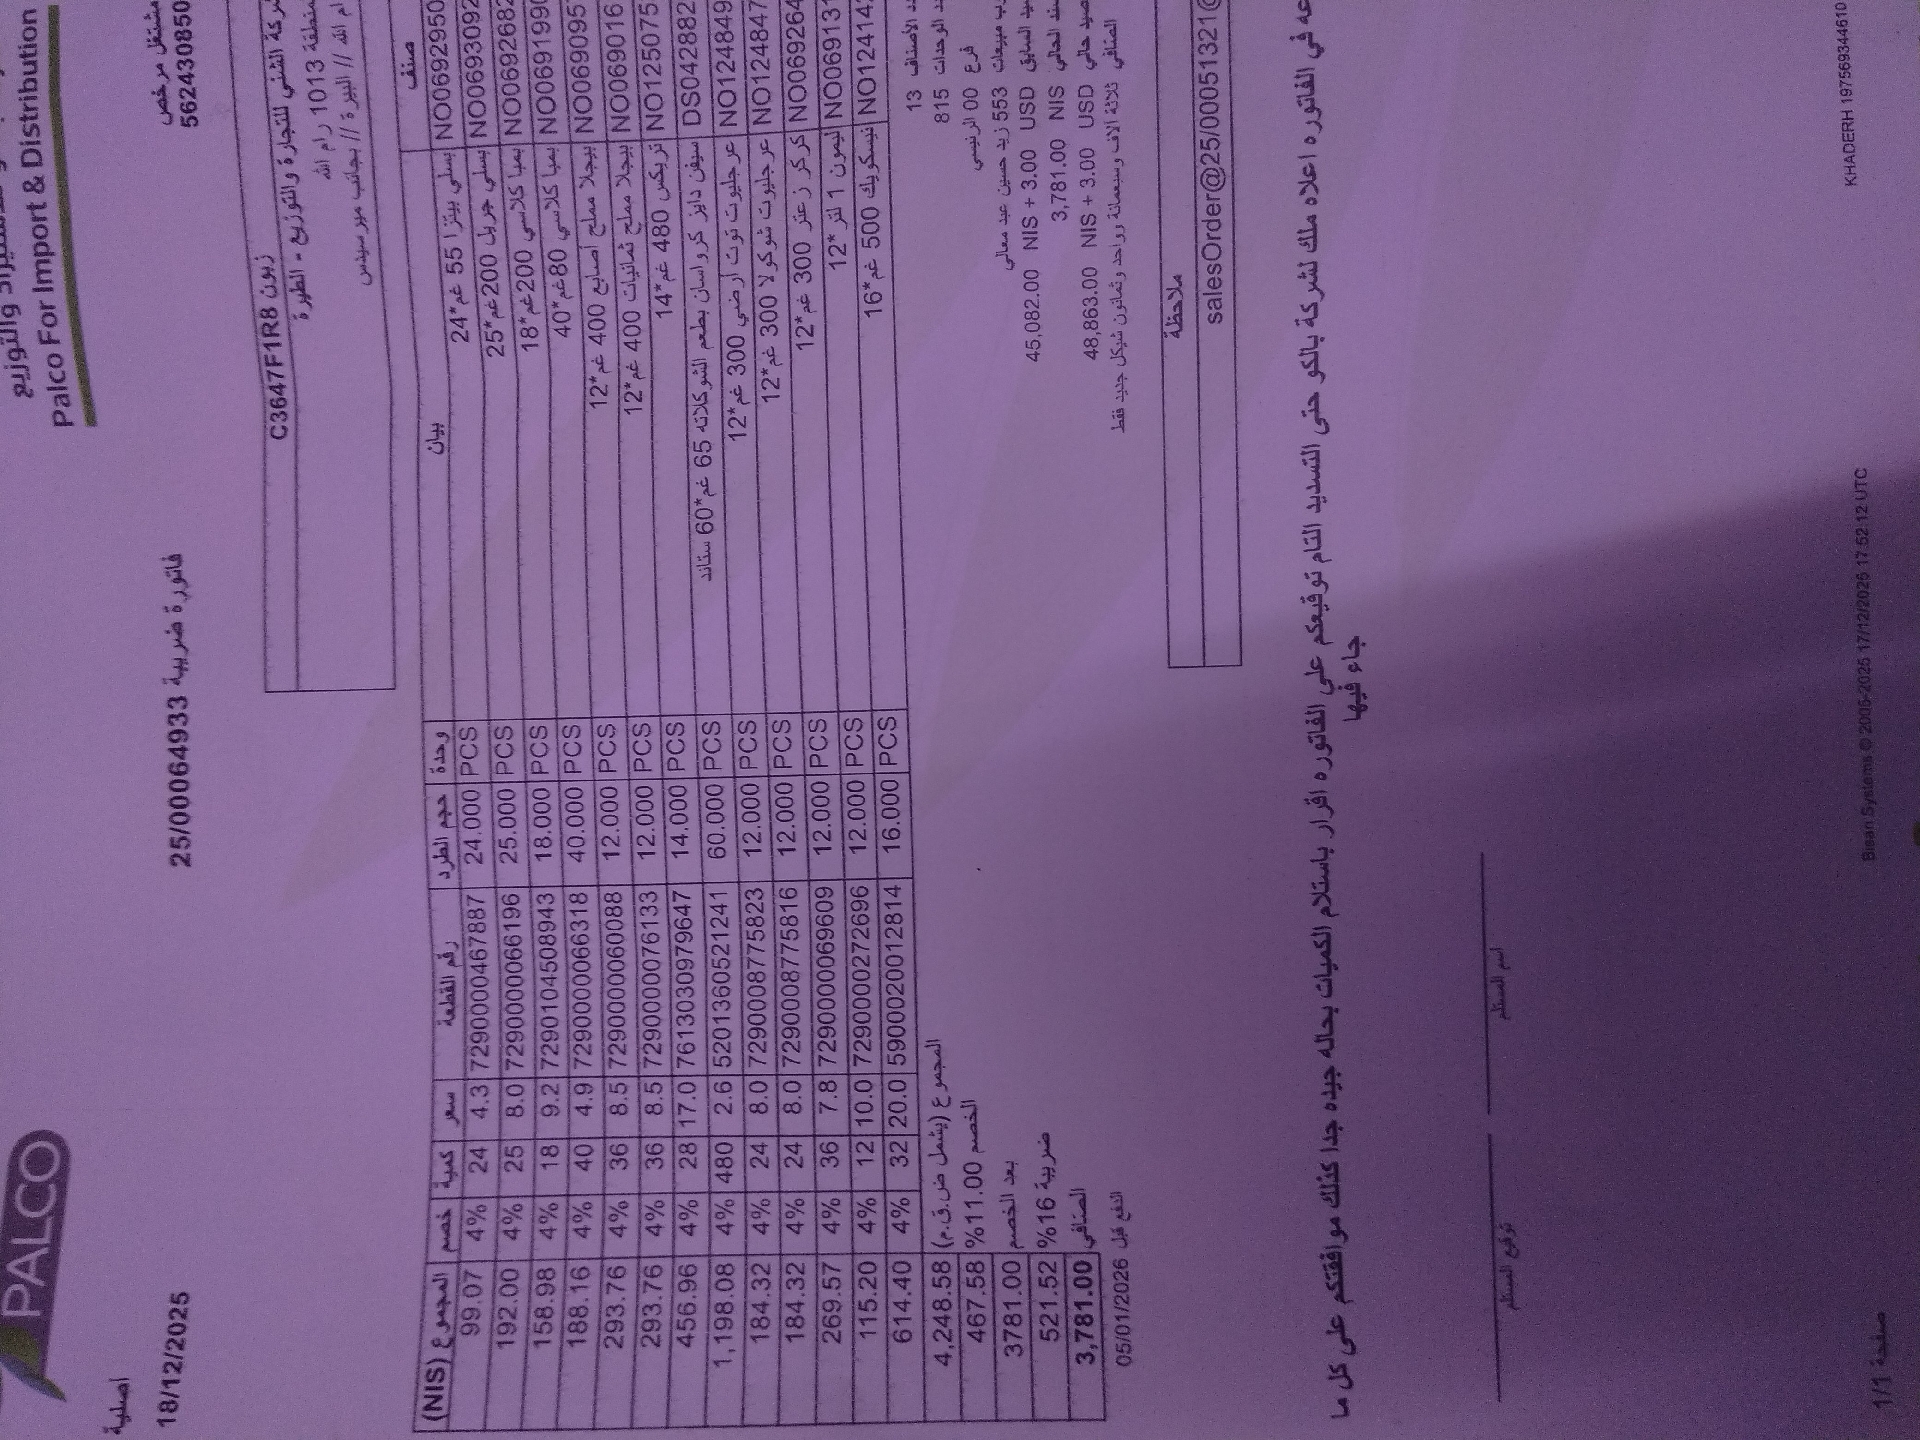 PALCO
والتوزيع
Palco For Import & Distribution
اصلية
مشتغل مرخص
18/12/2025 فاتورة ضريبية 25/00064933 562430850
زبون C3647F1R8
شركة الشني للتجارة والتوزيع - الطيرة
منطقة 1013 رام الله
صنف بيان وحدة حجم الطرد رقم القطعة سعر كمية خصم المجموع (NIS)
NO0692950 بسلي بيتزا 55 غم*24 PCS 24.000 7290000467887 4.3 24 4% 99.07
NO0693092 بسلي جريل 200غم*25 PCS 25.000 7290000066196 8.0 25 4% 192.00
NO0692682 بمبا كلاسي 200غم*18 PCS 18.000 7290104508943 9.2 18 4% 158.98
NO0691990 بمبا كلاسي 80غم*40 PCS 40.000 7290000066318 4.9 40 4% 188.16
NO069095 بيجلا مملح اصابع 400 غم*12 PCS 12.000 7290000060088 8.5 36 4% 293.76
NO069016 بيجلا مملح ثمانيات 400 غم*12 PCS 12.000 7290000076133 8.5 36 4% 293.76
NO125075 تريكس 480 غم*14 PCS 14.000 7613030979647 17.0 28 4% 456.96
DS042882 سيفن دايز كرواسان بطعم الشوكلاته 65 غم*60 ستاند PCS 60.000 5201360521241 2.6 480 4% 1,198.08
NO124849 عرجليوت توت ارضي 300 غم*12 PCS 12.000 7290008775823 8.0 24 4% 184.32
NO124847 عرجليوت شوكولا 300 غم*12 PCS 12.000 7290008775816 8.0 24 4% 184.32
NO069264 كركر زعتر 300 غم*12 PCS 12.000 7290000069609 7.8 36 4% 269.57
NO069131 ليمون 1 لتر*12 PCS 12.000 7290000272696 10.0 12 4% 115.20
NO124142 نيسكويك 500 غم*16 PCS 16.000 5900020012814 20.0 32 4% 614.40
الأصناف 13
الوحدات 815
فرع 00 الرئيسي
مبيعات 553 زيد حسين عبد معالي
السابق 45,082.00 NIS + 3.00 USD
الحالي 3,781.00 NIS
حالي 48,863.00 NIS + 3.00 USD
الصافي ثلاثة الاف وسبعمائة وواحد وثمانون شيكل جديد فقط
المجموع (يشمل ض.ق.م) 4,248.58
الخصم 11.00% 467.58
بعد الخصم 3781.00
ضريبة 16% 521.52
الصافي 3,781.00
الدفع قبل 05/01/2026
ملاحظة
salesOrder@25/00051321@
في الفاتوره اعلاه ملك لشركة بالكو حتى التسديد التام توقيعكم على الفاتوره اقرار باستلام الكميات بحاله جيده جدا كذلك موافقتكم على كل ما
جاء فيها
اسم المستلم
توقيع المستلم
KHADERH 197569344610
Bisan Systems © 2006-2025 17/12/2025 17:52:12 UTC
صفحة 1/1